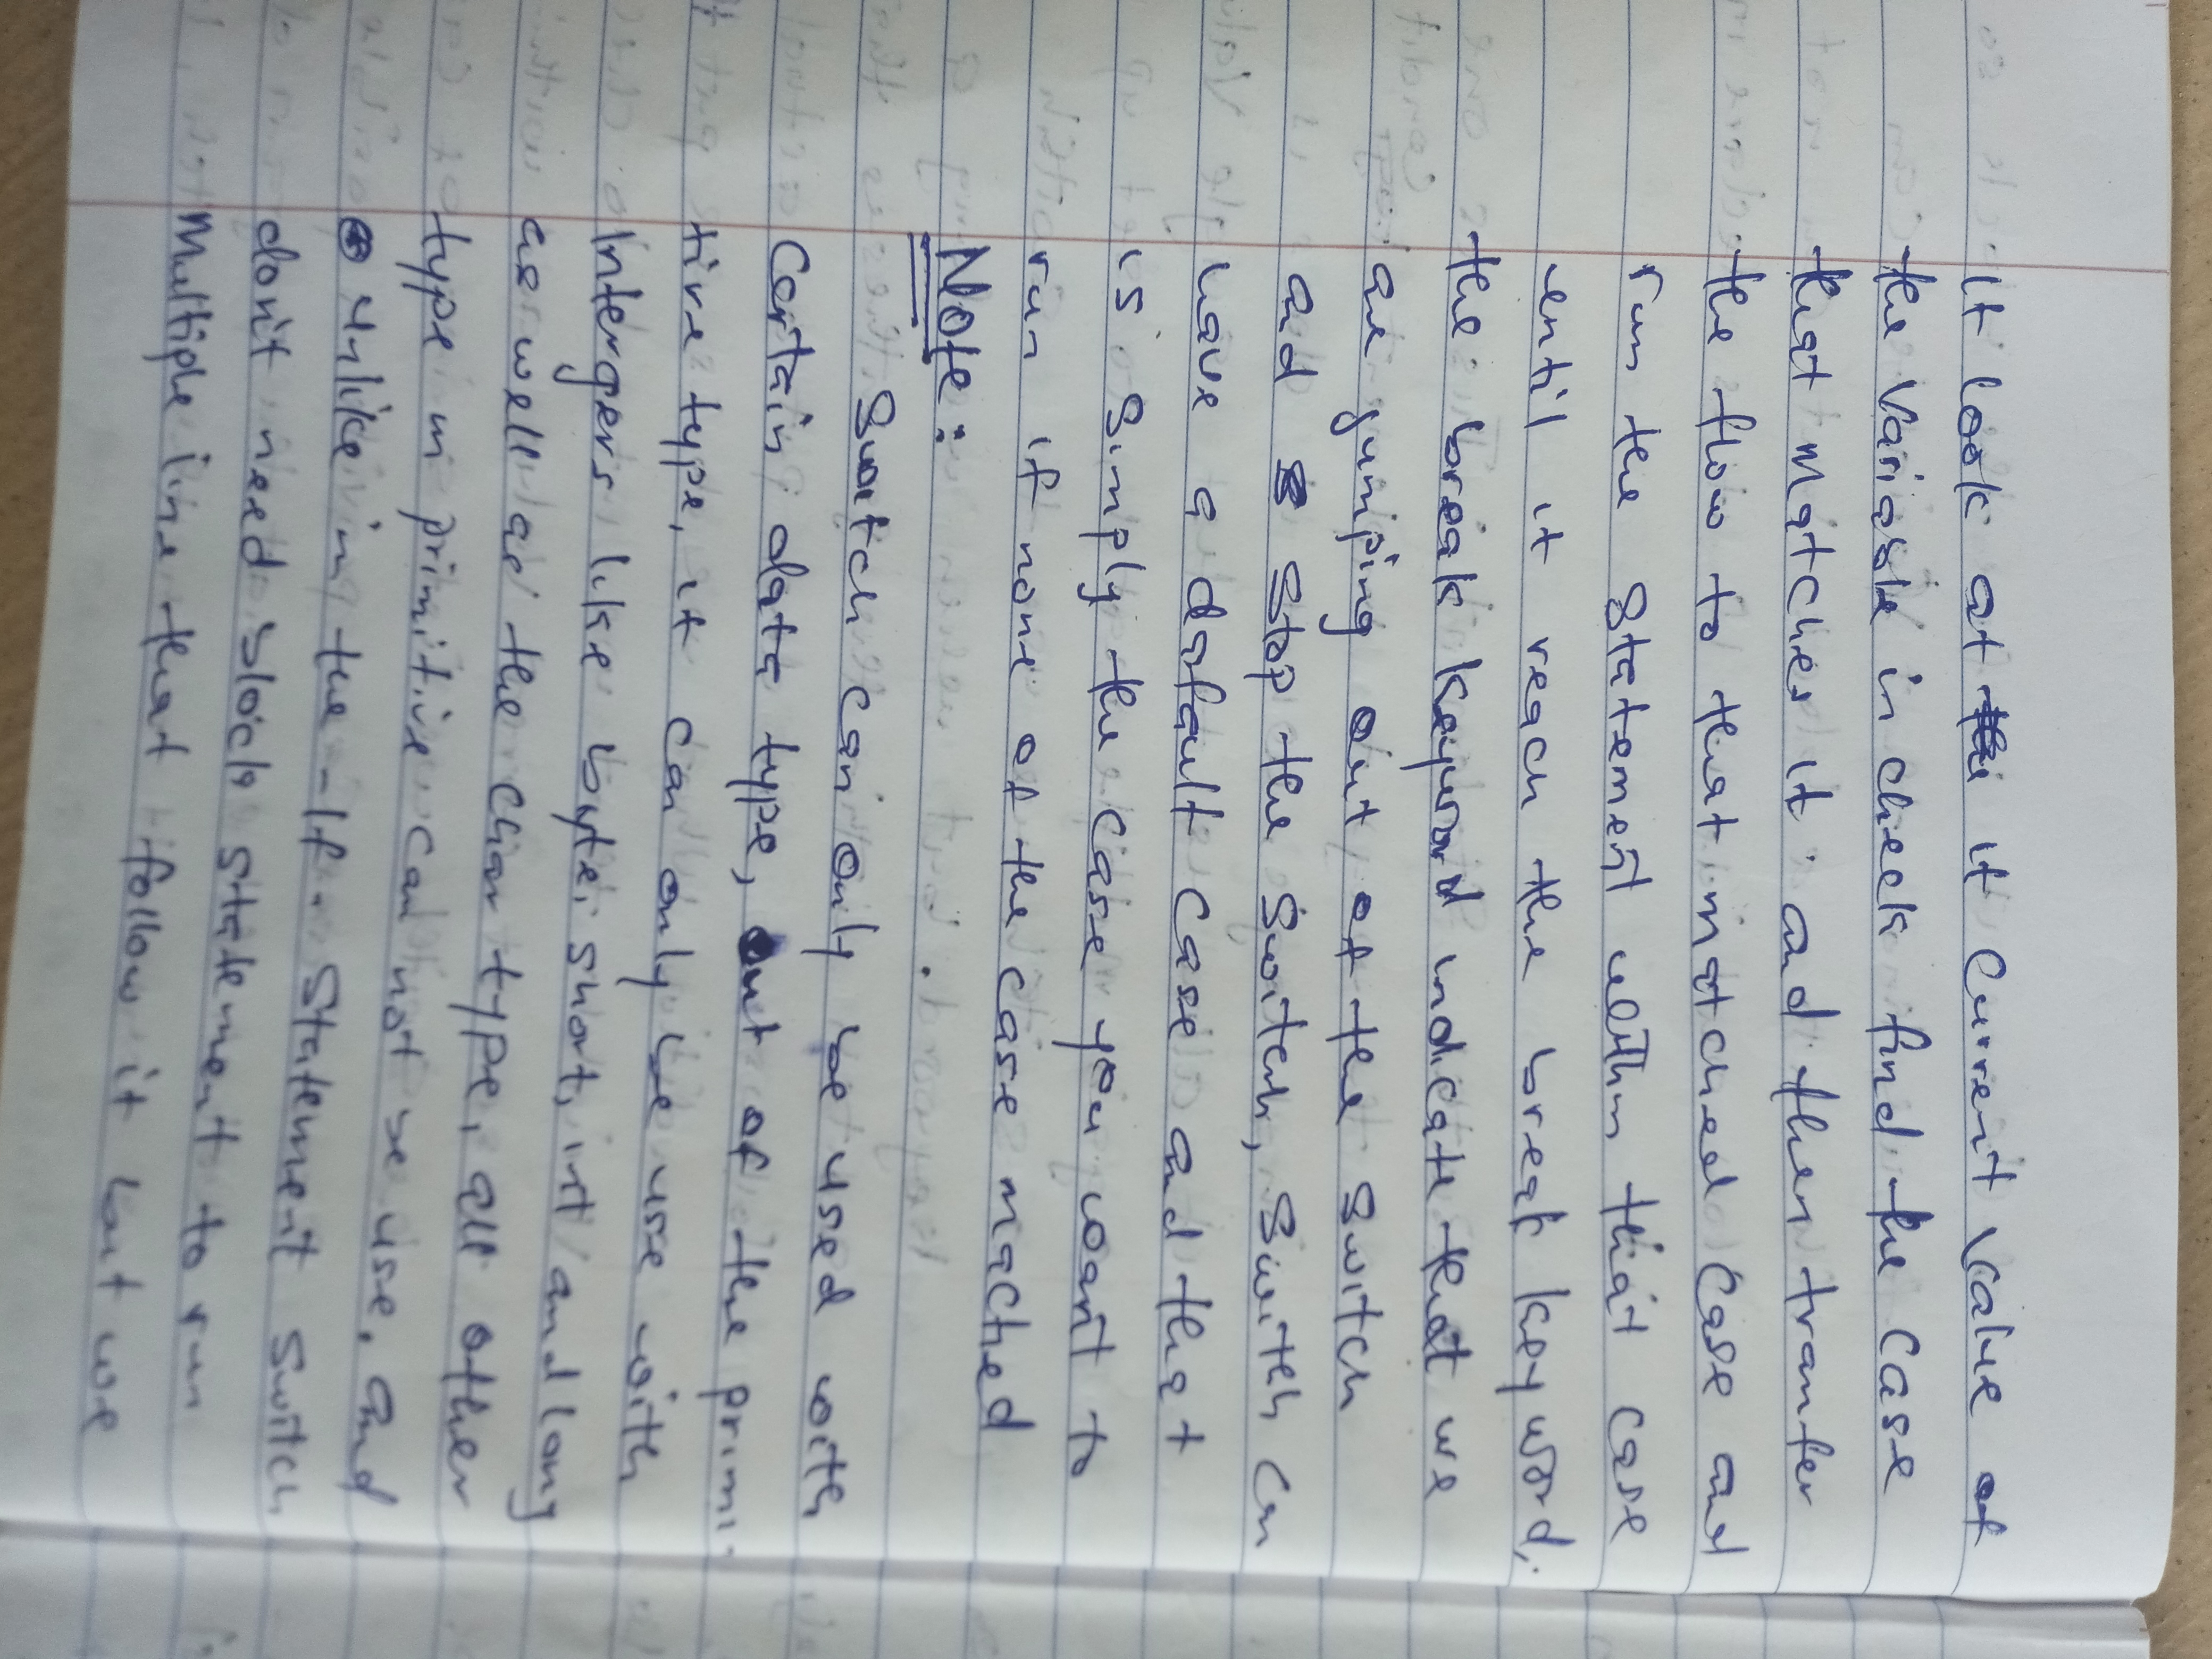 It look at it current value of
the variable in check find the case
that matches it and then tranfer
the flow to that matched case and
run the statement within that case
until it reach the break keyword,
the break keyword indicate that we
are jumping out of the switch
and stop the switch, switch can
have a default case and that
is simply the case you want to
run if none of the case mached
Note:
Switch can only be used with
certain data type, out of the primi-
tive type, it can only be use with
Intergers like byte, short, int and long
as well as the char type, all other
type in primitive can not be use, and
unlike in the -If statement switch
don't need block statement to run
Multiple line that follow it but we